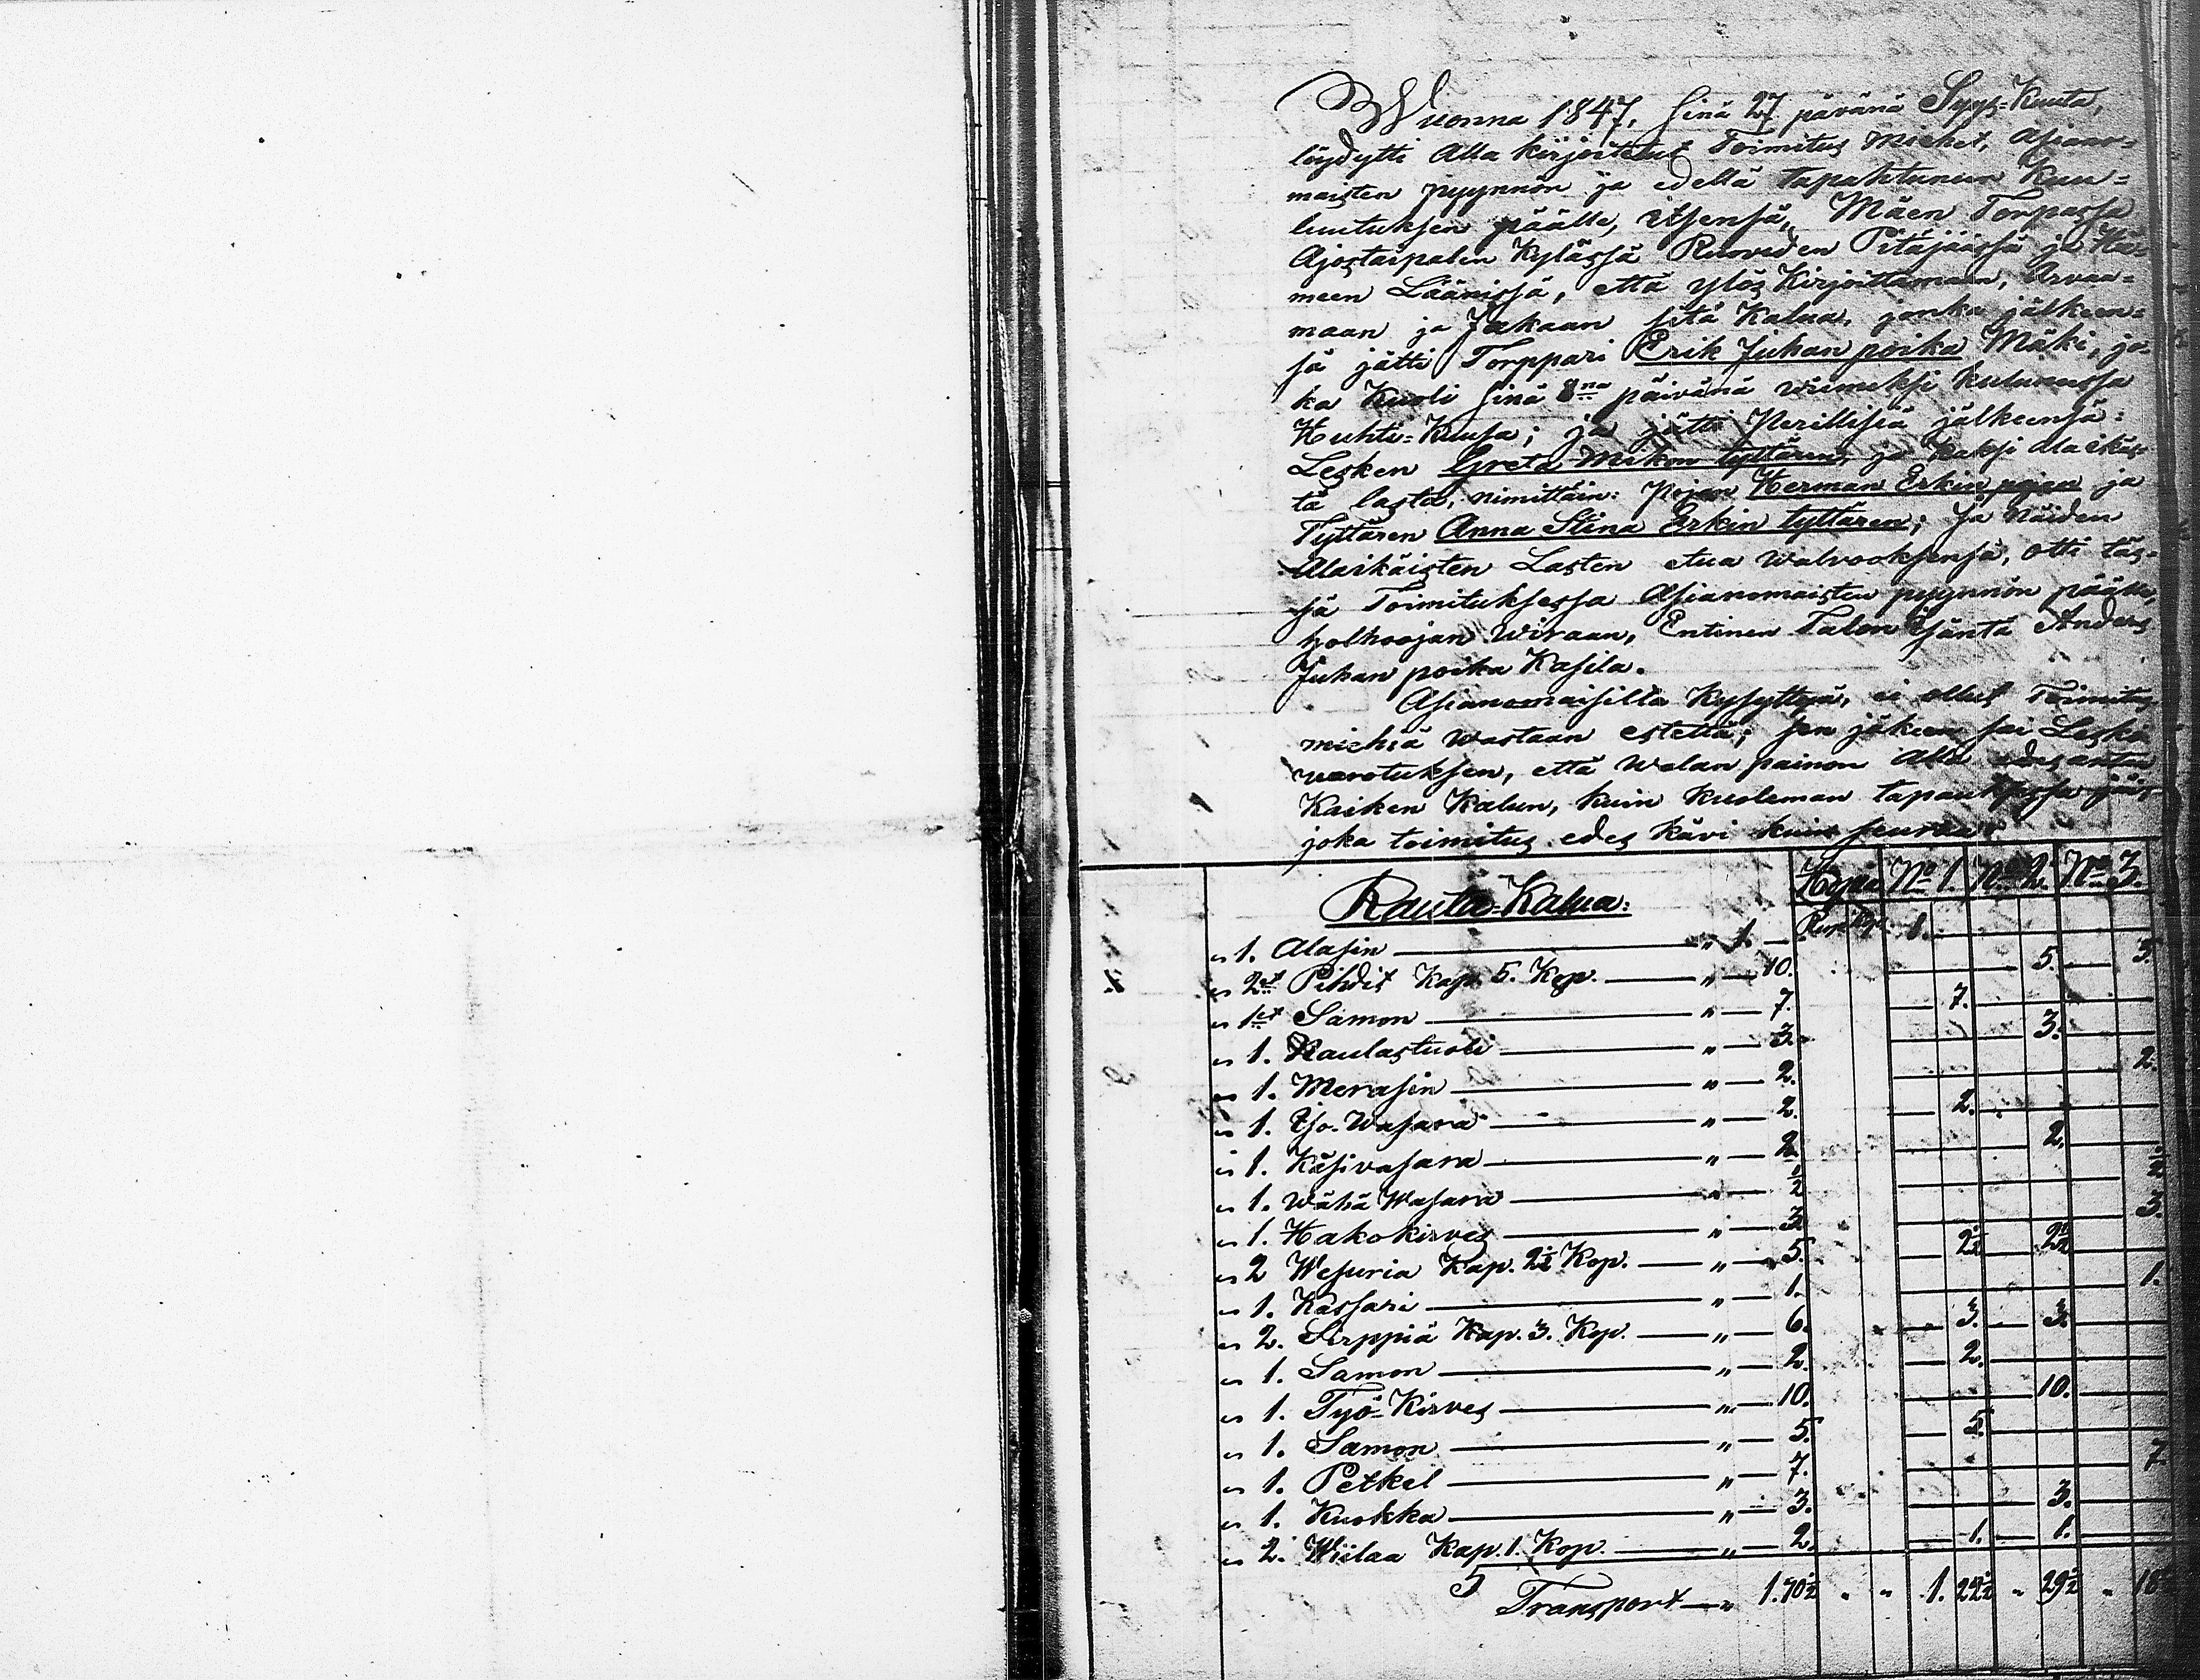 Wuonna 1847, sinä 27 pävänä Syys=Kuuta,
löydytti Alla kirjoitetut Toimitus miehet, Asiano=
maisten pyynnön ja edellä tapahtuneen Kuu=
luutuksen päälle, itsensä, Mäen Torpassa
Ajostaipalen Kylässä Ruoveden Pitäjäässä ja Hä=
meen Läänissä, että ylös Kirjoittamaan, Arvaa=
maan ja Jakaan sitä Kalua, jonka jälkeen=
sä jätti Torppari Erik Juhan poika Mäki, jo=
ka Kuoli sinä 8na päivänä wiimeksi kulunessa
Huhti=Kuusa; ja jätti Perillisiä jälkeensä:
Lesken Greta Mikon tyttären, ja kaksi alaikäs=
tä lasta, nimittäin: Pojan Herman Erkin pojan ja
Tyttären Anna Stina Erkin tyttären; ja näiden
Alaikäisten Lasten etua walvooksensa, otti täs=
sä Toimituksessa Asianomaisten pyynnön päälle,
holhoojan Wiraan, Entinen Talon Isäntä Anders
Juhan poika Kasila.
Asianomaisilta Kysyttyä, ei ollut Toimitus
miehiä wastaan estettä; sen jäkeen sai Leski
warotuksen, että walan painon alla edesantaa
Kaiken Kalun, kuin kuoleman tapauksessa jäi,
joka toimitus edes kävi kuin seuraa:
Rauta=Kalua: Hopia No 1. No 2. No 3.
Rup. Kop.
" 1. Alasin — " 1. — 1.
" 2et Pihdit Kap. 5. Kop. — " — 10. 5. 5.
" 1et Samon — " — 7. 7.
" 1. Kaulastuoli — " — 3. 3.
" 1. Merasin — " — 2. 2.
" 1. Iso-Wasara — " — 2. 2.
" 1. Käsivasara — " — 2. 2.
" 1. Wähä Wasara — " — ½ ½
" 1. Hakokirves — " — 3. 3.
" 2 Wesuria Kap. 2½ Kop. — " — 5. 2½ 2½
" 1. Kassari — " — 1. 1.
" 2. Sirppiä Kap. 3. Kop. — " — 6. 3. 3.
" 1. Samon — " — 2. 2.
" 1. Työ=Kirves — " — 10. 10.
" 1. Samon — " — 5. 5.
" 1. Petkel — " — 7. 7.
" 1. Kuokka — " — 3. 3.
" 2. Wiilaa Kap. 1. Kop. — " — 2. 1. 1.
5 Transport — " 1.70½ " " 1. 22½ " 29½ " 18½